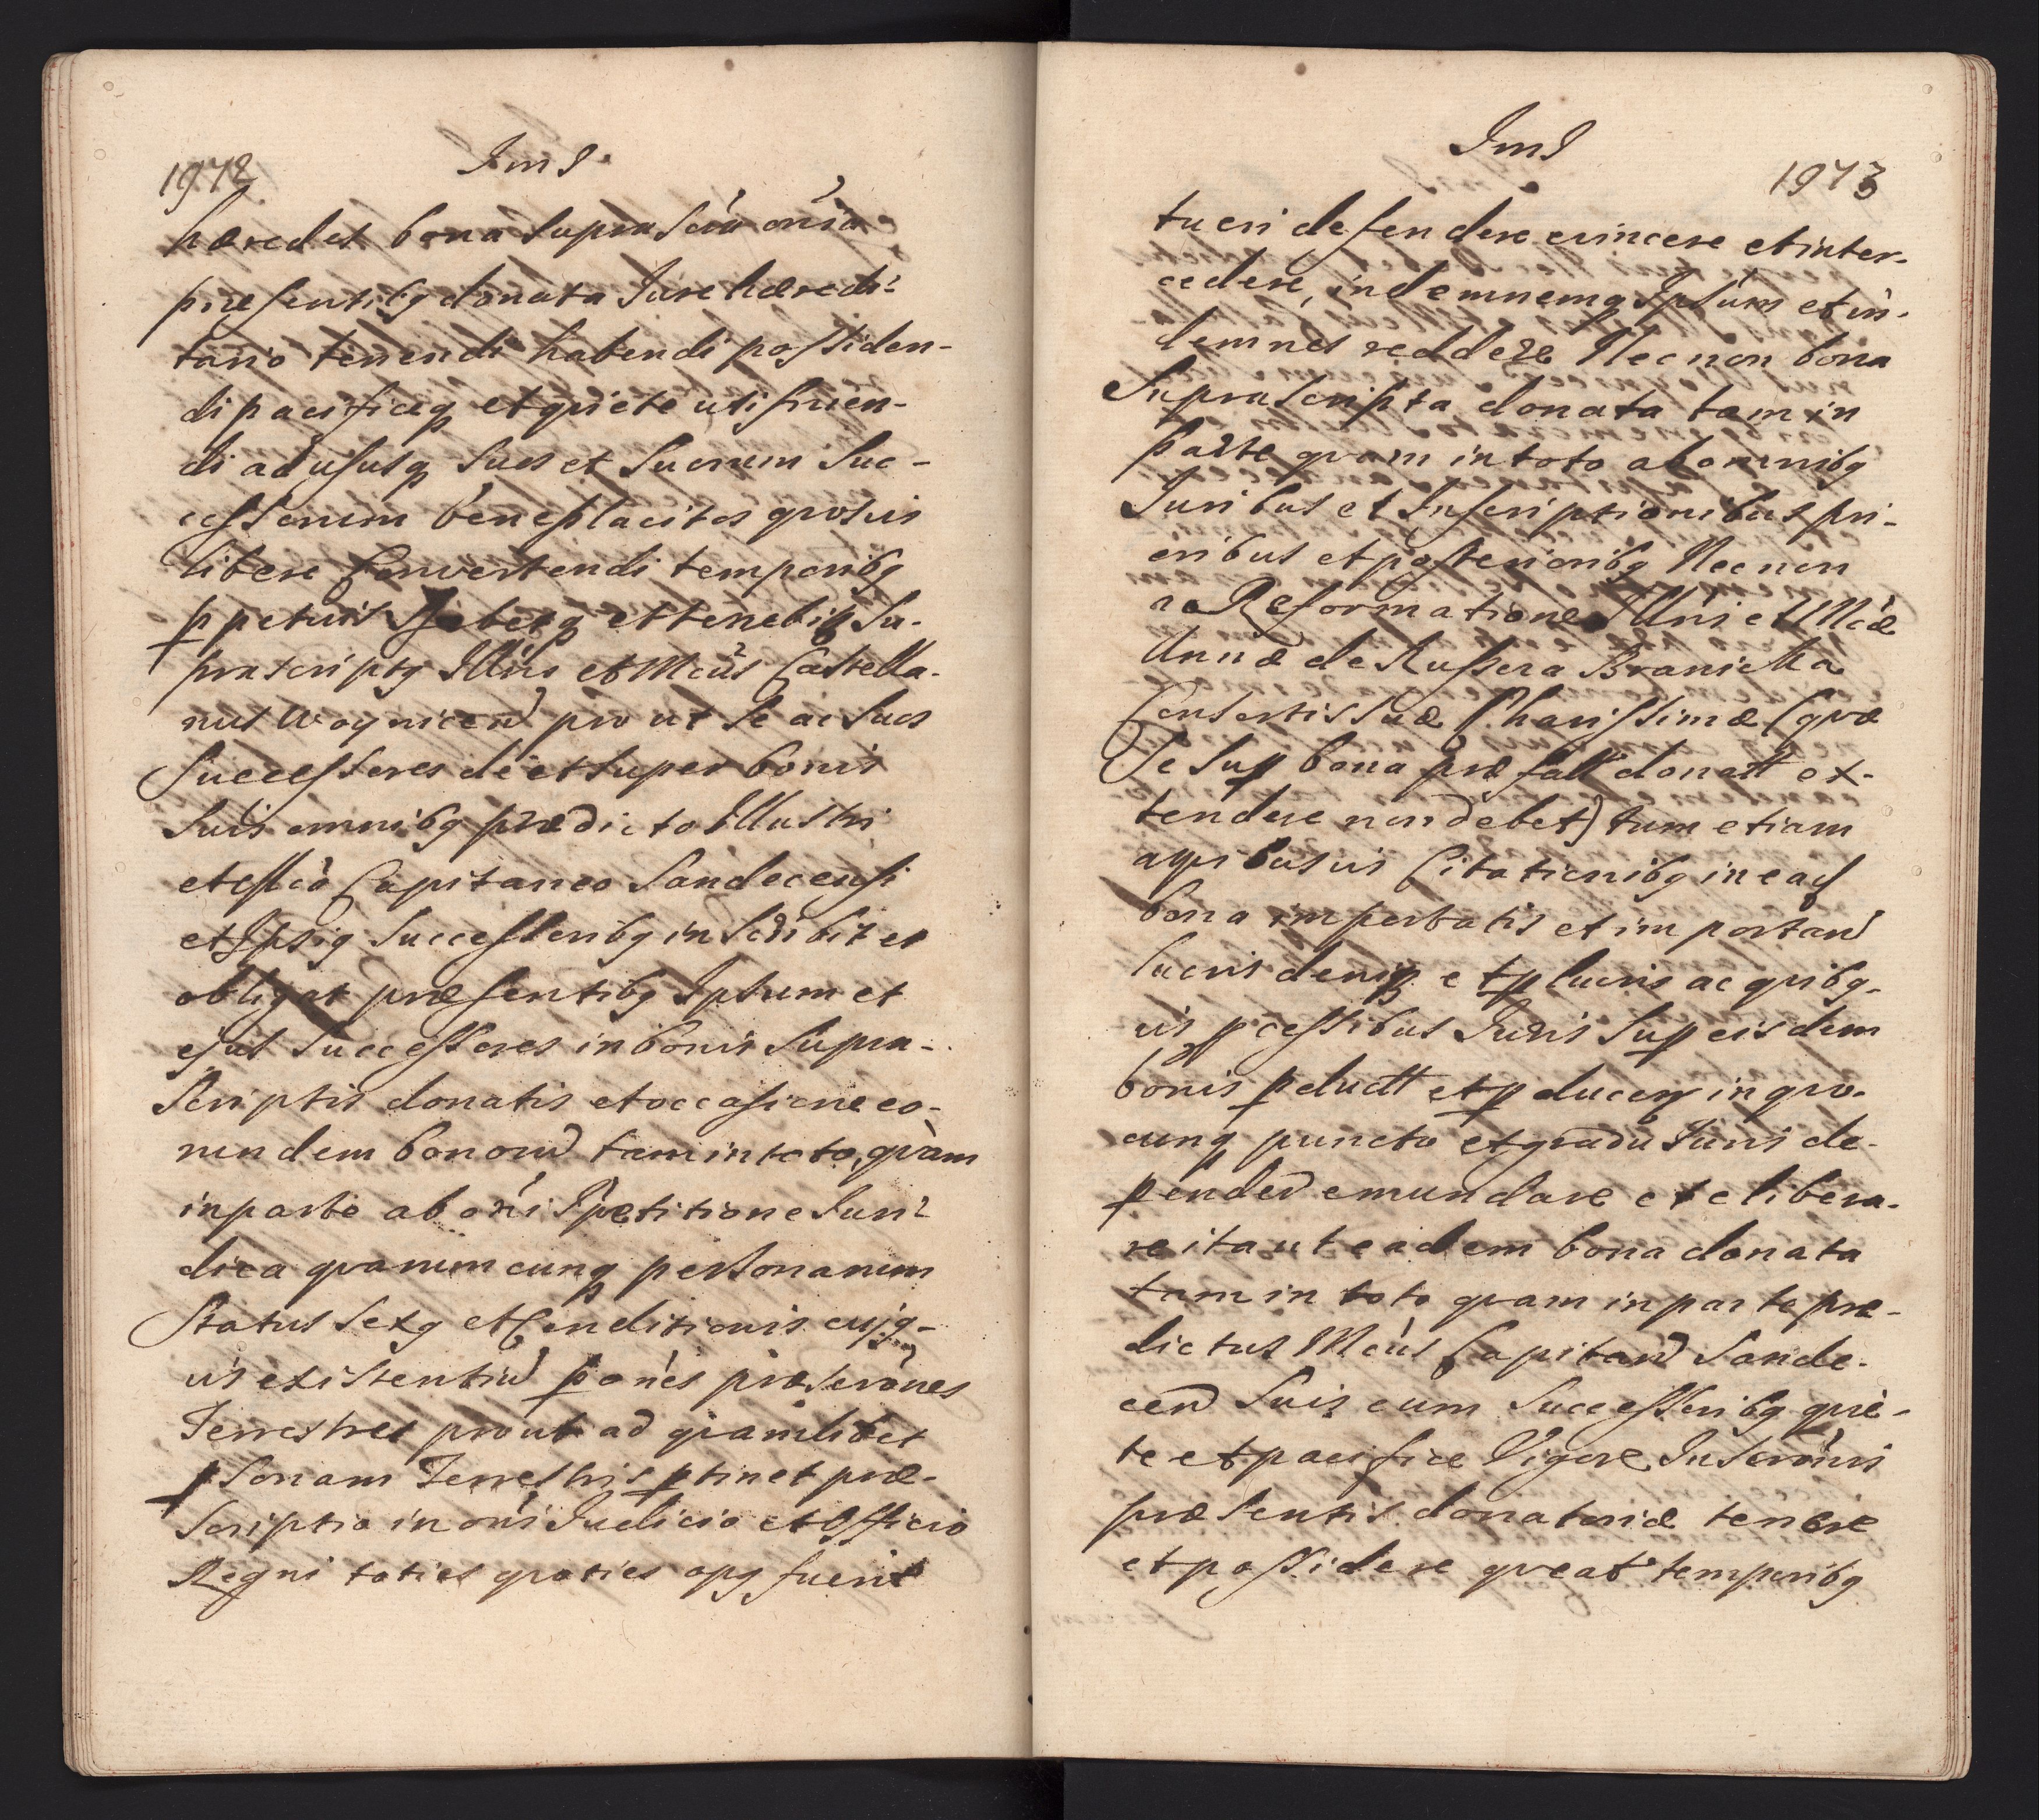 1972
Ims
hæredes bona suprascrta omia
præsentibq donata Jure hæredi-
tario tenendi habendi possiden-
di pacificeq et quiete utifruen-
di ad ususq suos et suorum suc-
cessorum beneplacitos quosvis
libere Convertendi temporibq
ppetuis et tenebit Su-
prascriptq Illris et Mcus Castella-
nus woynicen prout se ac suos
Successores de et super bonis
suis omnibq prædicto Illustri
et Mco Capitaneo Sandecensi
et Ipsiq Successoribq inscribit et
obligat præsentibq Ipsum et
ejus Successores in bonis supra-
scriptis donatis et occasione eo-
rundem bonoru tam in toto, quàm
in parte ab oni Ppetitione Juri-
dica quarumcunq personarum
Status Sexq et Conditionis cujq-
vis existentiu p ones præscrones
Terrestres prout ad quamlibet
psonam Terrestris ptinet præ-
scriptio in oni Judicio et Officio
Regni toties quoties opq fuerit
Ims
1973
tueri defendere evincere et inter-
cedere, indemnemq Ipsum et in-
demnes reddere Necnon bona
Suprascripta donata tam in
parte quam in toto ab omnibq
Juribus et Inscriptionibus pri-
oribus et posterioribq Necnon
a Reformatione Illris et Mcæ
Annæ de Russera Branicka
Consortis suæ Charissimæ (quæ
Se sup bona præfatt donatt ex-
tendere non debet) tum etiam
a quibusvis Citationibq in eaq
bona importatis et importan
lucris deniq et plucris ac quibq-
vis pcessibus Juris sup eisdem
bonis pductt et pducen in quo-
cunq puncto et gradu Juris de-
penden emundare et elibera-
re ita ut eadem bona donata
tam in toto quam in parte præ-
dictus Mcus Capitan Sande-
cen Suis cum Successoribq quie-
te et pacifice Vigore Inscronis
præsentis donatoriæ tenere
et possidere queat temporibq